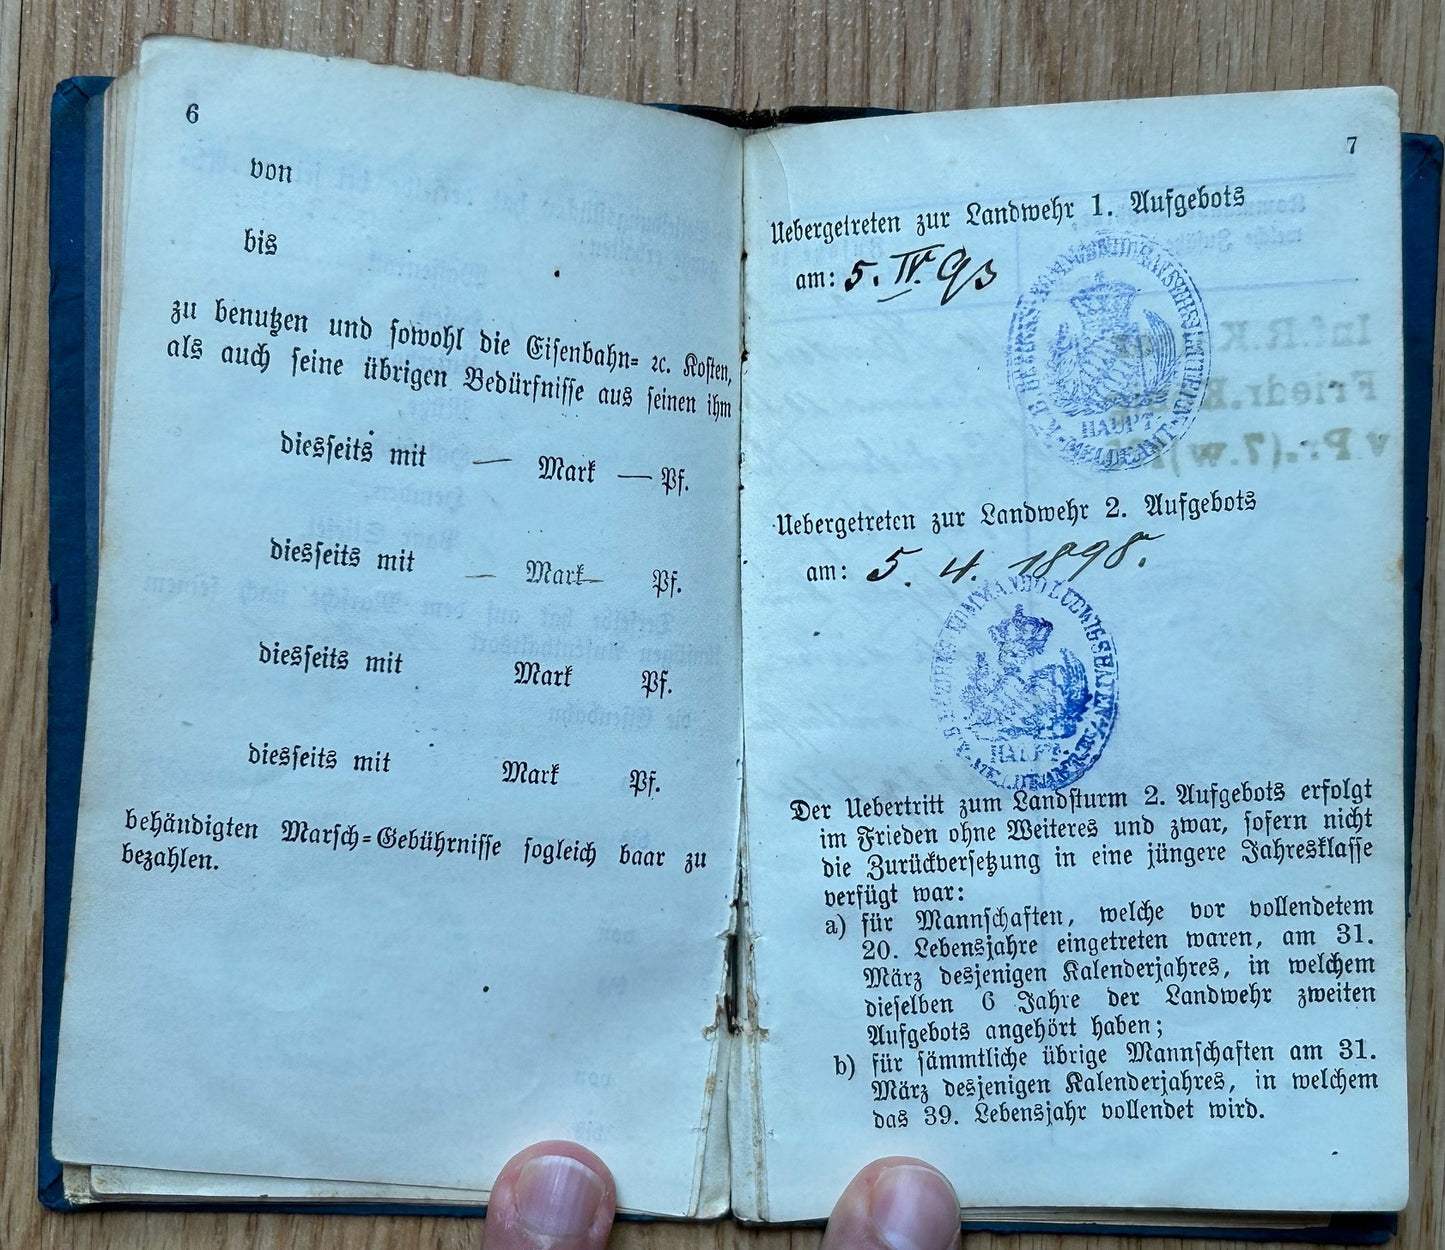 6
von
bis
zu benutzen und sowohl die Eisenbahn= ꝛc. Kosten,
als auch seine übrigen Bedürfnisse aus seinen ihm
diesseits mit — Mark — Pf.
diesseits mit — Mark — Pf.
diesseits mit Mark Pf.
diesseits mit Mark Pf.
behändigten Marsch=Gebührnisse sogleich baar zu
bezahlen.
7
Uebergetreten zur Landwehr 1. Aufgebots
am: 5. IV. 93
HAUPT-
MELDEAMT
Uebergetreten zur Landwehr 2. Aufgebots
am: 5. 4. 1898.
BEZIRKS-KOMMANDO LUDWIGSHAFEN
HAUPT-
MELDEAMT
Der Uebertritt zum Landsturm 2. Aufgebots erfolgt
im Frieden ohne Weiteres und zwar, sofern nicht
die Zurückversetzung in eine jüngere Jahresklasse
verfügt war:
a) für Mannschaften, welche vor vollendetem
20. Lebensjahre eingetreten waren, am 31.
März desjenigen Kalenderjahres, in welchem
dieselben 6 Jahre der Landwehr zweiten
Aufgebots angehört haben;
b) für sämmtliche übrige Mannschaften am 31.
März desjenigen Kalenderjahres, in welchem
das 39. Lebensjahr vollendet wird.